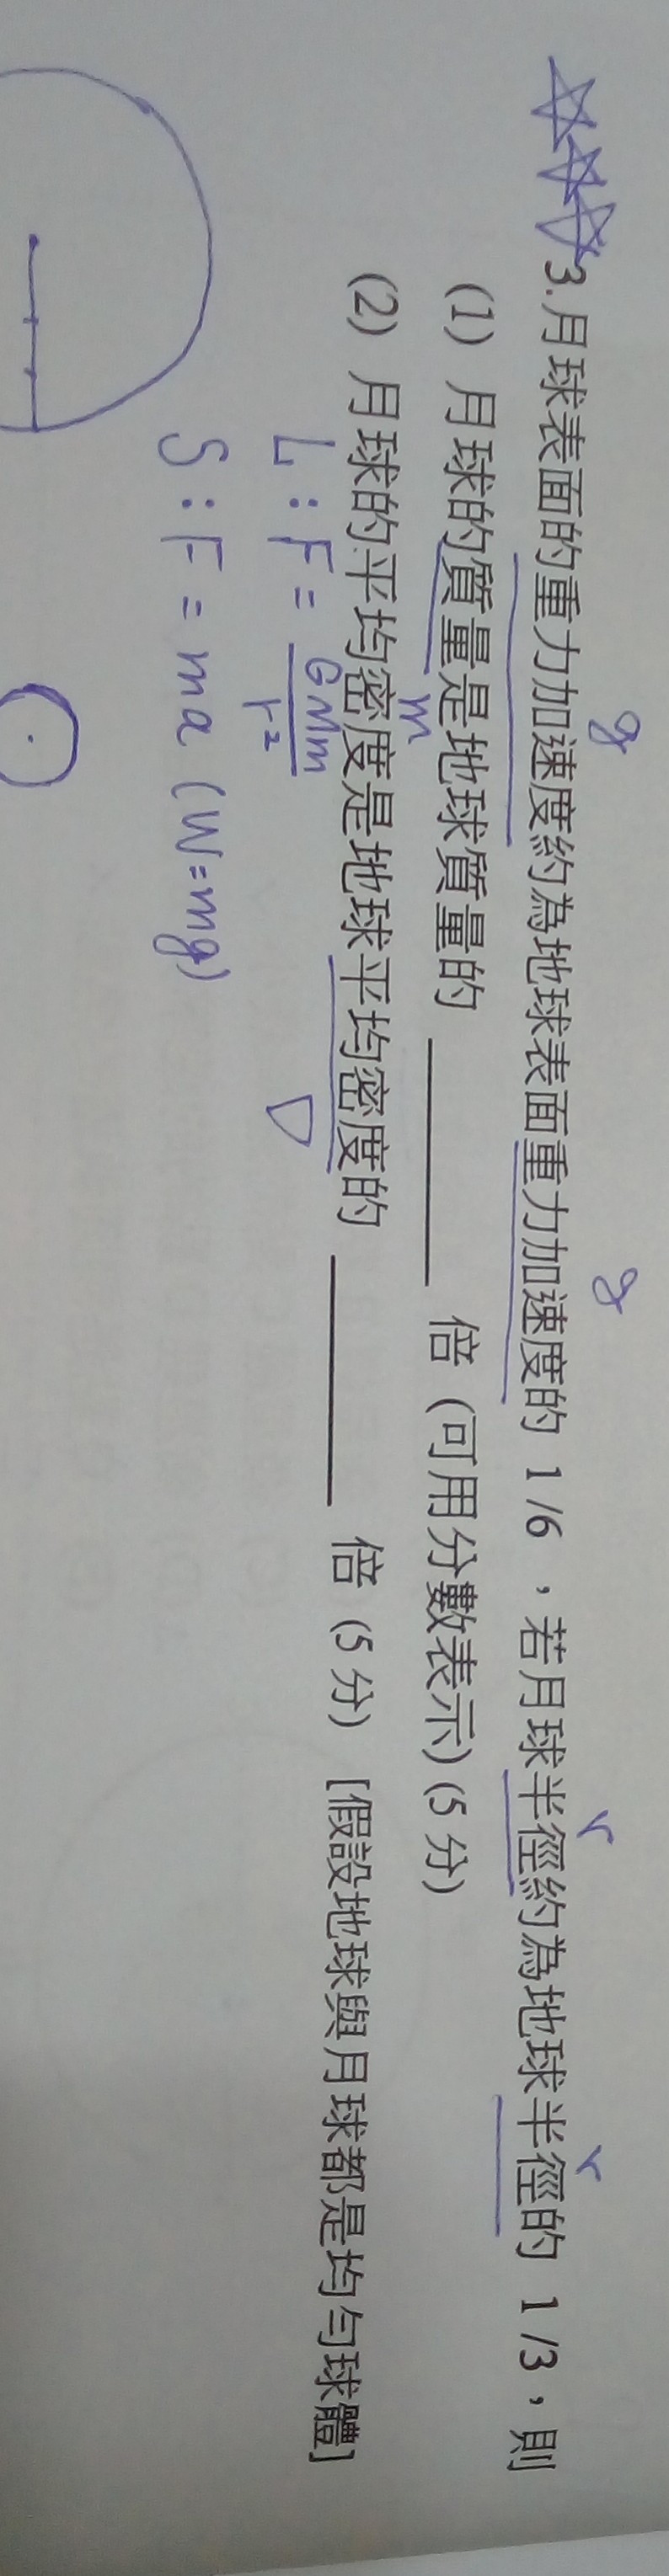 g g r r
3.月球表面的重力加速度約為地球表面重力加速度的 1/6 ，若月球半徑約為地球半徑的 1/3，則
(1) 月球的質量是地球質量的 ________ 倍 (可用分數表示)(5 分)
m
(2) 月球的平均密度是地球平均密度的 ________ 倍 (5 分) [假設地球與月球都是均勻球體]
L : F = GMm/r²
S : F = ma (W=mg)